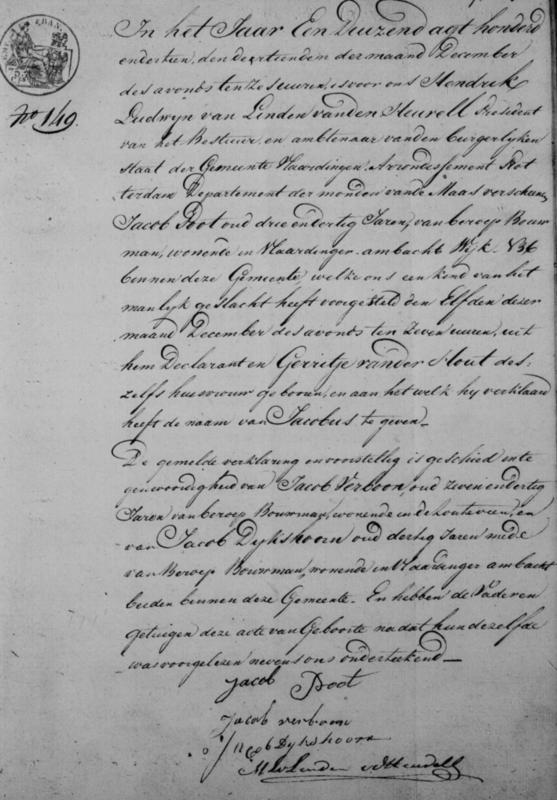 No 149.
In het Jaar Een Duizend agt honderd
en dertien, den dertienden der maand December
des avonds ten zes uuren, is voor ons Hendrik
Ludwyn van Linden van den Heuvell President
van het Bestuur en ambtenaar van den burgerlyken
Staat der Gemeente Vlaardingen, Arrondissement Rot
terdam Departement der monden van de Maas verscheenen
Jacob Poot oud drie en dertig Jaren, van beroep Bouw
man, wonende in Vlaardinger-ambacht Wyk
binnen deze Gemeente, welke ons een kind van het
manlyk geslacht heeft voorgesteld den Elfden dezer
maand December des avonds ten zeven uuren, uit
hem Declarant en Gerritje vander Hout des-
zelfs huisvrouw geboren, en aan het welk hy verklaard
heeft de naam van Jacobus te geven
De gemelde verklaring en voorstellig is geschied inte
genwoordigheid van Jacob Verboon, oud zeven en dertig
Jaren van beroep Bouwman, wonende in de houtveen, en
van Jacob Dykshoorn oud dertig Jaren mede
van Beroep Bouwman, wonende in Vlaardinger ambacht
beiden binnen deze Gemeente. En hebben de Vader en
getuigen deze acte van Geboorte na dat hun dezelfde
was voorgelezen nevens ons ondertekend
Jacob Poot
Jacob verboon
Jacob Dykshoorn
HLv Linden vd Heuvell